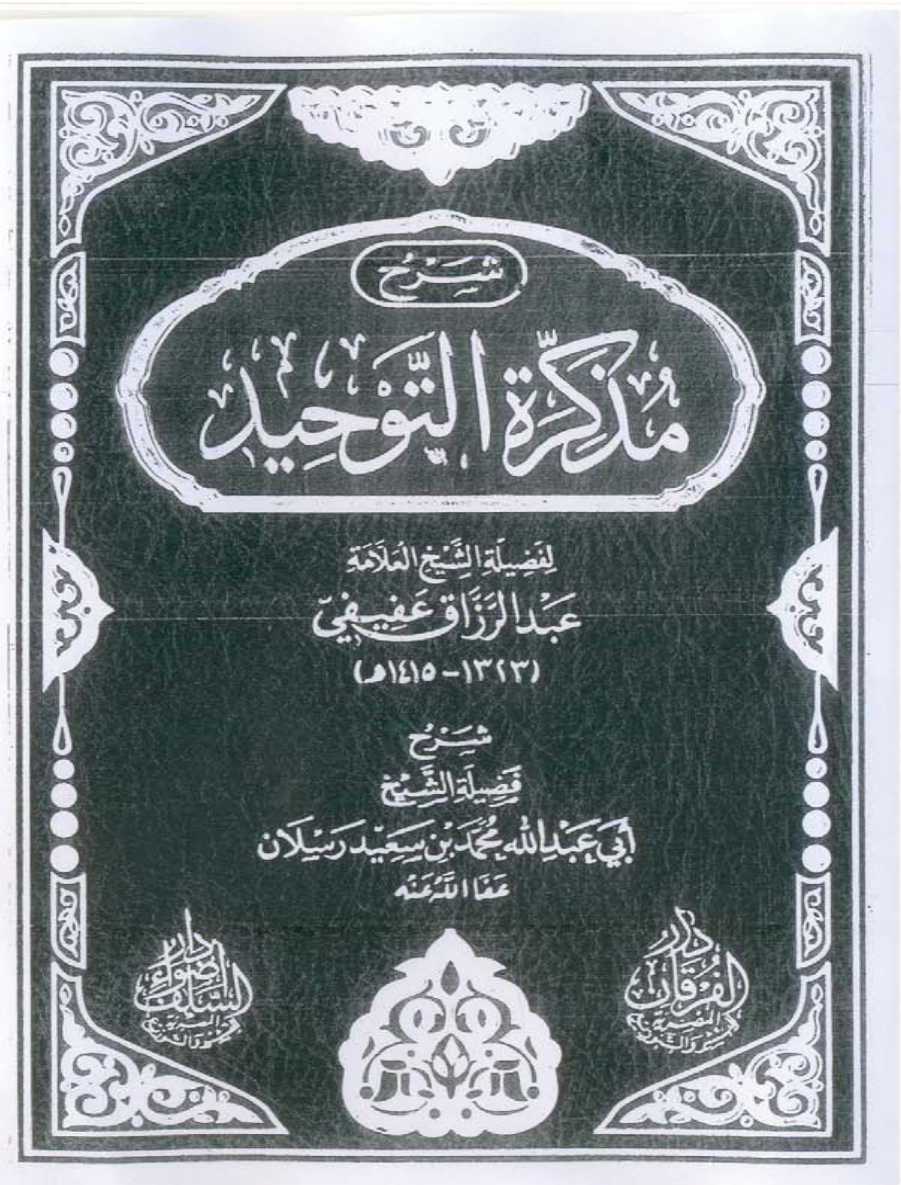 شَرْحُ
مُذَكِّرَةِ التَّوْحِيدِ
لِفَضِيلَةِ الشَّيْخِ العَلَّامَةِ
عَبْدِ الرَّزَّاقِ عَفِيفِيّ
(١٣٢٣ - ١٤١٥هـ)
شَرْحُ
فَضِيلَةِ الشَّيْخِ
أَبِي عَبْدِ اللَّهِ مُحَمَّدِ بْنِ سَعِيدِ رَسْلَان
عَفَا اللَّهُ عَنْهُ
دار
الفرقان
المصرية
للنشر والتوزيع
دار
أضواء
السلف
المصرية
للنشر والتوزيع